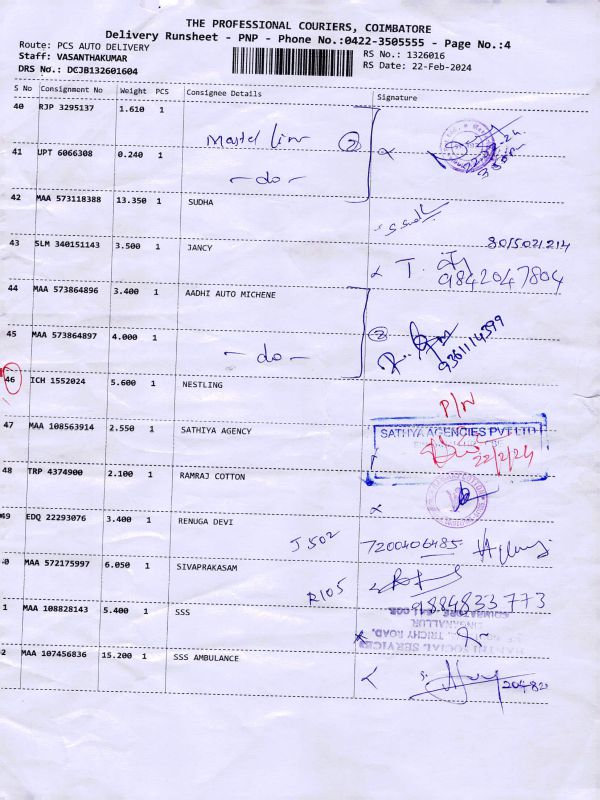 THE PROFESSIONAL COURIERS, COIMBATORE
Delivery Runsheet - PNP - Phone No.:0422-3505555 - Page No.:4
Route: PCS AUTO DELIVERY
RS No.: 1326016
Staff: VASANTHAKUMAR
RS Date: 22-Feb-2024
DRS No.: DCJB132601604
S No Consignment No Weight PCS Consignee Details Signature
40 RJP 3295137 1.610 1
2
41 UPT 6066308 0.240 1
- do -
22.02.24
42 MAA 573118388 13.350 1 SUDHA
43 SLM 340151143 3.500 1 JANCY
9842047804
44 MAA 573864896 3.400 1 AADHI AUTO MICHENE
45 MAA 573864897 4.000 1
- do -
2
9361114399
46 ICH 1552024 5.600 1 NESTLING
P/N
47 MAA 108563914 2.550 1 SATHIYA AGENCY
SATHYA AGENCIES PVT LTD
22/2/24
48 TRP 4374900 2.100 1 RAMRAJ COTTON
49 EDQ 22293076 3.400 1 RENUGA DEVI
J502 7200406485
0 MAA 572175997 6.050 1 SIVAPRAKASAM
R105 9884833773
1 MAA 108828143 5.400 1 SSS
2 MAA 107456836 15.200 1 SSS AMBULANCE